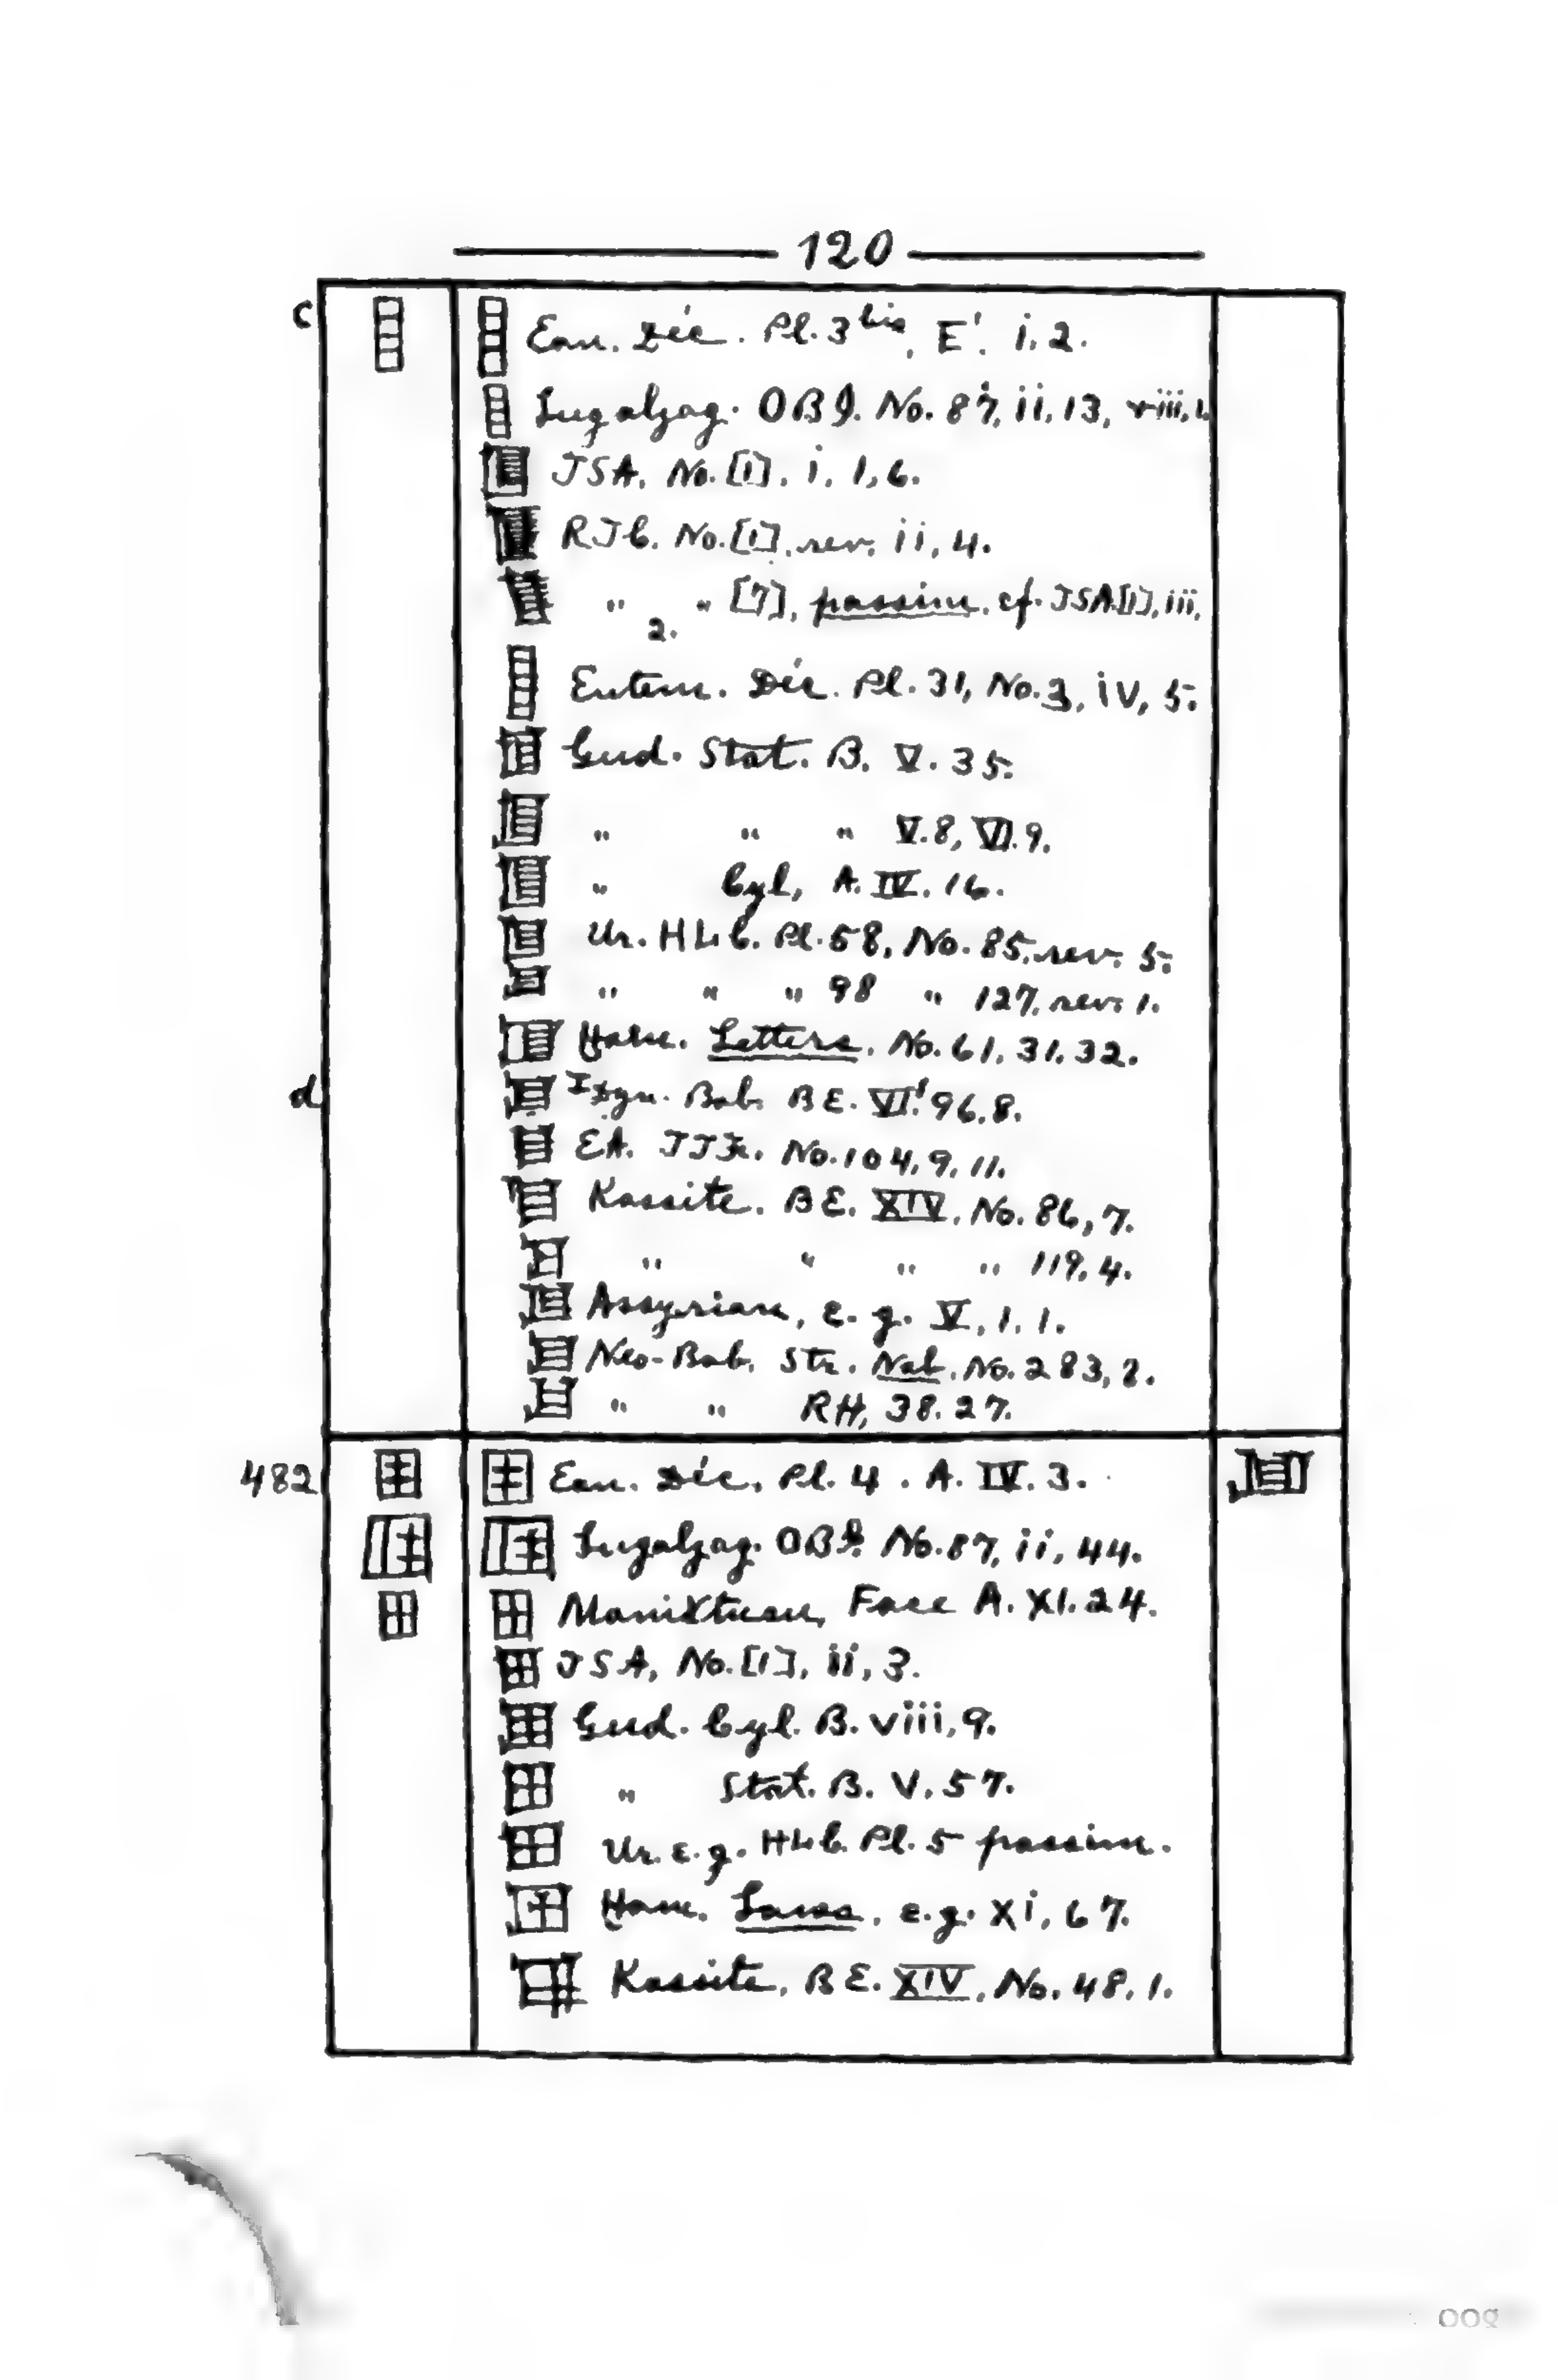 120
c Ean. Déc. Pl. 3 bis, E'. i. 2.
Lugalzag. OBI. No. 87, ii, 13, viii, 1.
JSA. No. [1]. i. 1, 6.
RTC. No. [1], rev. ii, 4.
" " [7], passim. cf. JSA. [1], iii,
2.
Entem. Déc. Pl. 31, No. 3, iv, 5.
Gud. Stat. B. V. 35.
" " " V. 8, VI. 9.
" Cyl, A. IV. 16.
Ur. HLC. Pl. 58, No. 85, rev. 5.
" " " 98 " 127, rev. 1.
Ham. Letters. No. 61, 31. 32.
d I Dyn. Bab. BE. VI.1 96. 8.
EA. No. 104, 9, 11.
Kassite. BE. XIV. No. 86, 7.
" " " " 119, 4.
Assyrian, e. g. V, 1. 1.
Neo-Bab. Str. Nab. No. 283, 2.
" " RH, 38. 27.
482 Ean. Déc. Pl. 4. A. IV. 3.
Lugalzag. OBI. No. 87, ii, 44.
Maništusu, Face A. XI. 24.
JSA, No. [1], ii, 3.
Gud. Cyl. B. viii, 9.
" Stat. B. V. 57.
Ur. e. g. HLC. Pl. 5 passim.
Ham. Laws. e. g. xi, 67.
Kassite, BE. XIV, No. 48. 1.